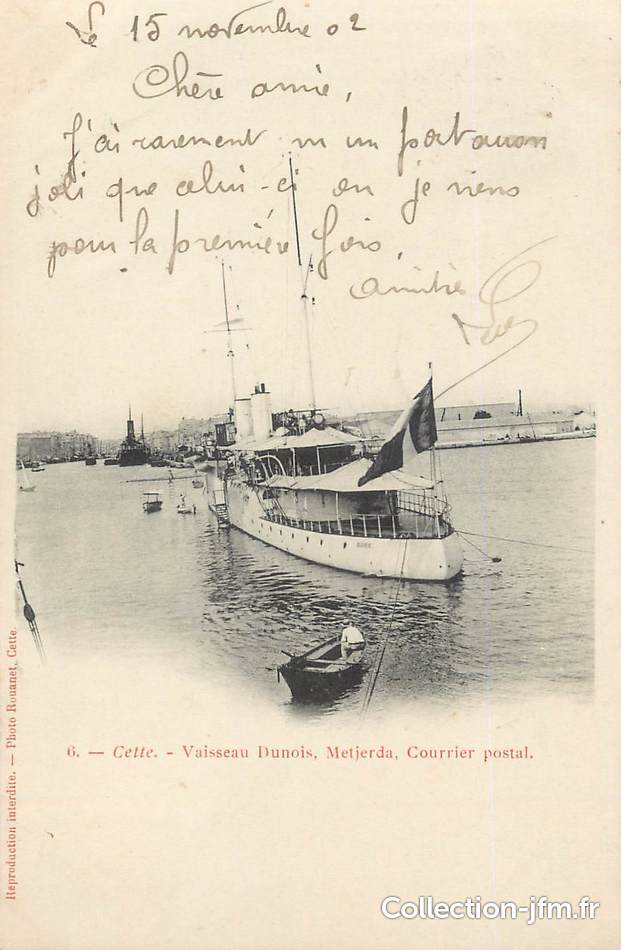 Le 15 novembre 02
Chère amie,
J'ai rarement vu un port aussi
joli que celui-ci où je viens
pour la première fois.
Amitiés
6. — Cette. - Vaisseau Dunois, Metjerda, Courrier postal.
Reproduction interdite. — Photo Rouanet, Cette.
Collection-jfm.fr